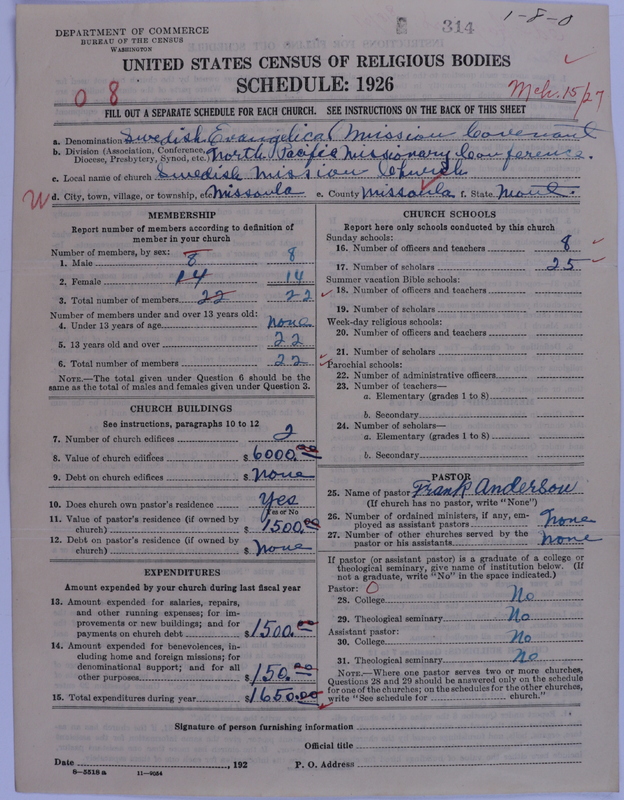 DEPARTMENT OF COMMERCE
BUREAU OF THE CENSUS
WASHINGTON
314
1-8-0
UNITED STATES CENSUS OF RELIGIOUS BODIES
SCHEDULE: 1926
0 8
Mch. 15/27
FILL OUT A SEPARATE SCHEDULE FOR EACH CHURCH. SEE INSTRUCTIONS ON THE BACK OF THIS SHEET
a. Denomination Swedish Evangelical Mission Covenant
b. Division (Association, Conference, Diocese, Presbytery, Synod, etc.) North Pacific Missionary Conference.
c. Local name of church Swedish Mission Church
W d. City, town, village, or township, etc. Missoula e. County Missoula f. State Mont.
MEMBERSHIP
Report number of members according to definition of
member in your church
Number of members, by sex:
1. Male 8 8
2. Female 14 14
3. Total number of members 22 22
Number of members under and over 13 years old:
4. Under 13 years of age none
5. 13 years old and over 22
6. Total number of members 22
NOTE.—The total given under Question 6 should be the
same as the total of males and females given under Question 3.
CHURCH BUILDINGS
See instructions, paragraphs 10 to 12
7. Number of church edifices 2
8. Value of church edifices $ 6000.00
9. Debt on church edifices $ None
10. Does church own pastor's residence Yes
Yes or No
11. Value of pastor's residence (if owned by
church) $ 1500.00
12. Debt on pastor's residence (if owned by
church) $ None
EXPENDITURES
Amount expended by your church during last fiscal year
13. Amount expended for salaries, repairs,
and other running expenses; for im-
provements or new buildings; and for
payments on church debt $ 1500.00
14. Amount expended for benevolences, in-
cluding home and foreign missions; for
denominational support; and for all
other purposes $ 150.00
15. Total expenditures during year $ 1650.00
CHURCH SCHOOLS
Report here only schools conducted by this church
Sunday schools:
16. Number of officers and teachers 8
17. Number of scholars 25
Summer vacation Bible schools:
18. Number of officers and teachers
19. Number of scholars
Week-day religious schools:
20. Number of officers and teachers
21. Number of scholars
Parochial schools:
22. Number of administrative officers
23. Number of teachers—
a. Elementary (grades 1 to 8)
b. Secondary
24. Number of scholars—
a. Elementary (grades 1 to 8)
b. Secondary
PASTOR
25. Name of pastor Frank Anderson
(If church has no pastor, write "None")
26. Number of ordained ministers, if any, em-
ployed as assistant pastors none
27. Number of other churches served by the
pastor or his assistants none
If pastor (or assistant pastor) is a graduate of a college or
theological seminary, give name of institution below. (If
not a graduate, write "No" in the space indicated.)
Pastor: 0
28. College No
29. Theological seminary No
Assistant pastor:
30. College No
31. Theological seminary No
NOTE.—Where one pastor serves two or more churches,
Questions 28 and 29 should be answered only on the schedule
for one of the churches; on the schedules for the other churches,
write "See schedule for church."
Signature of person furnishing information
Official title
Date , 192 P. O. Address
8—5518 a 11—9054